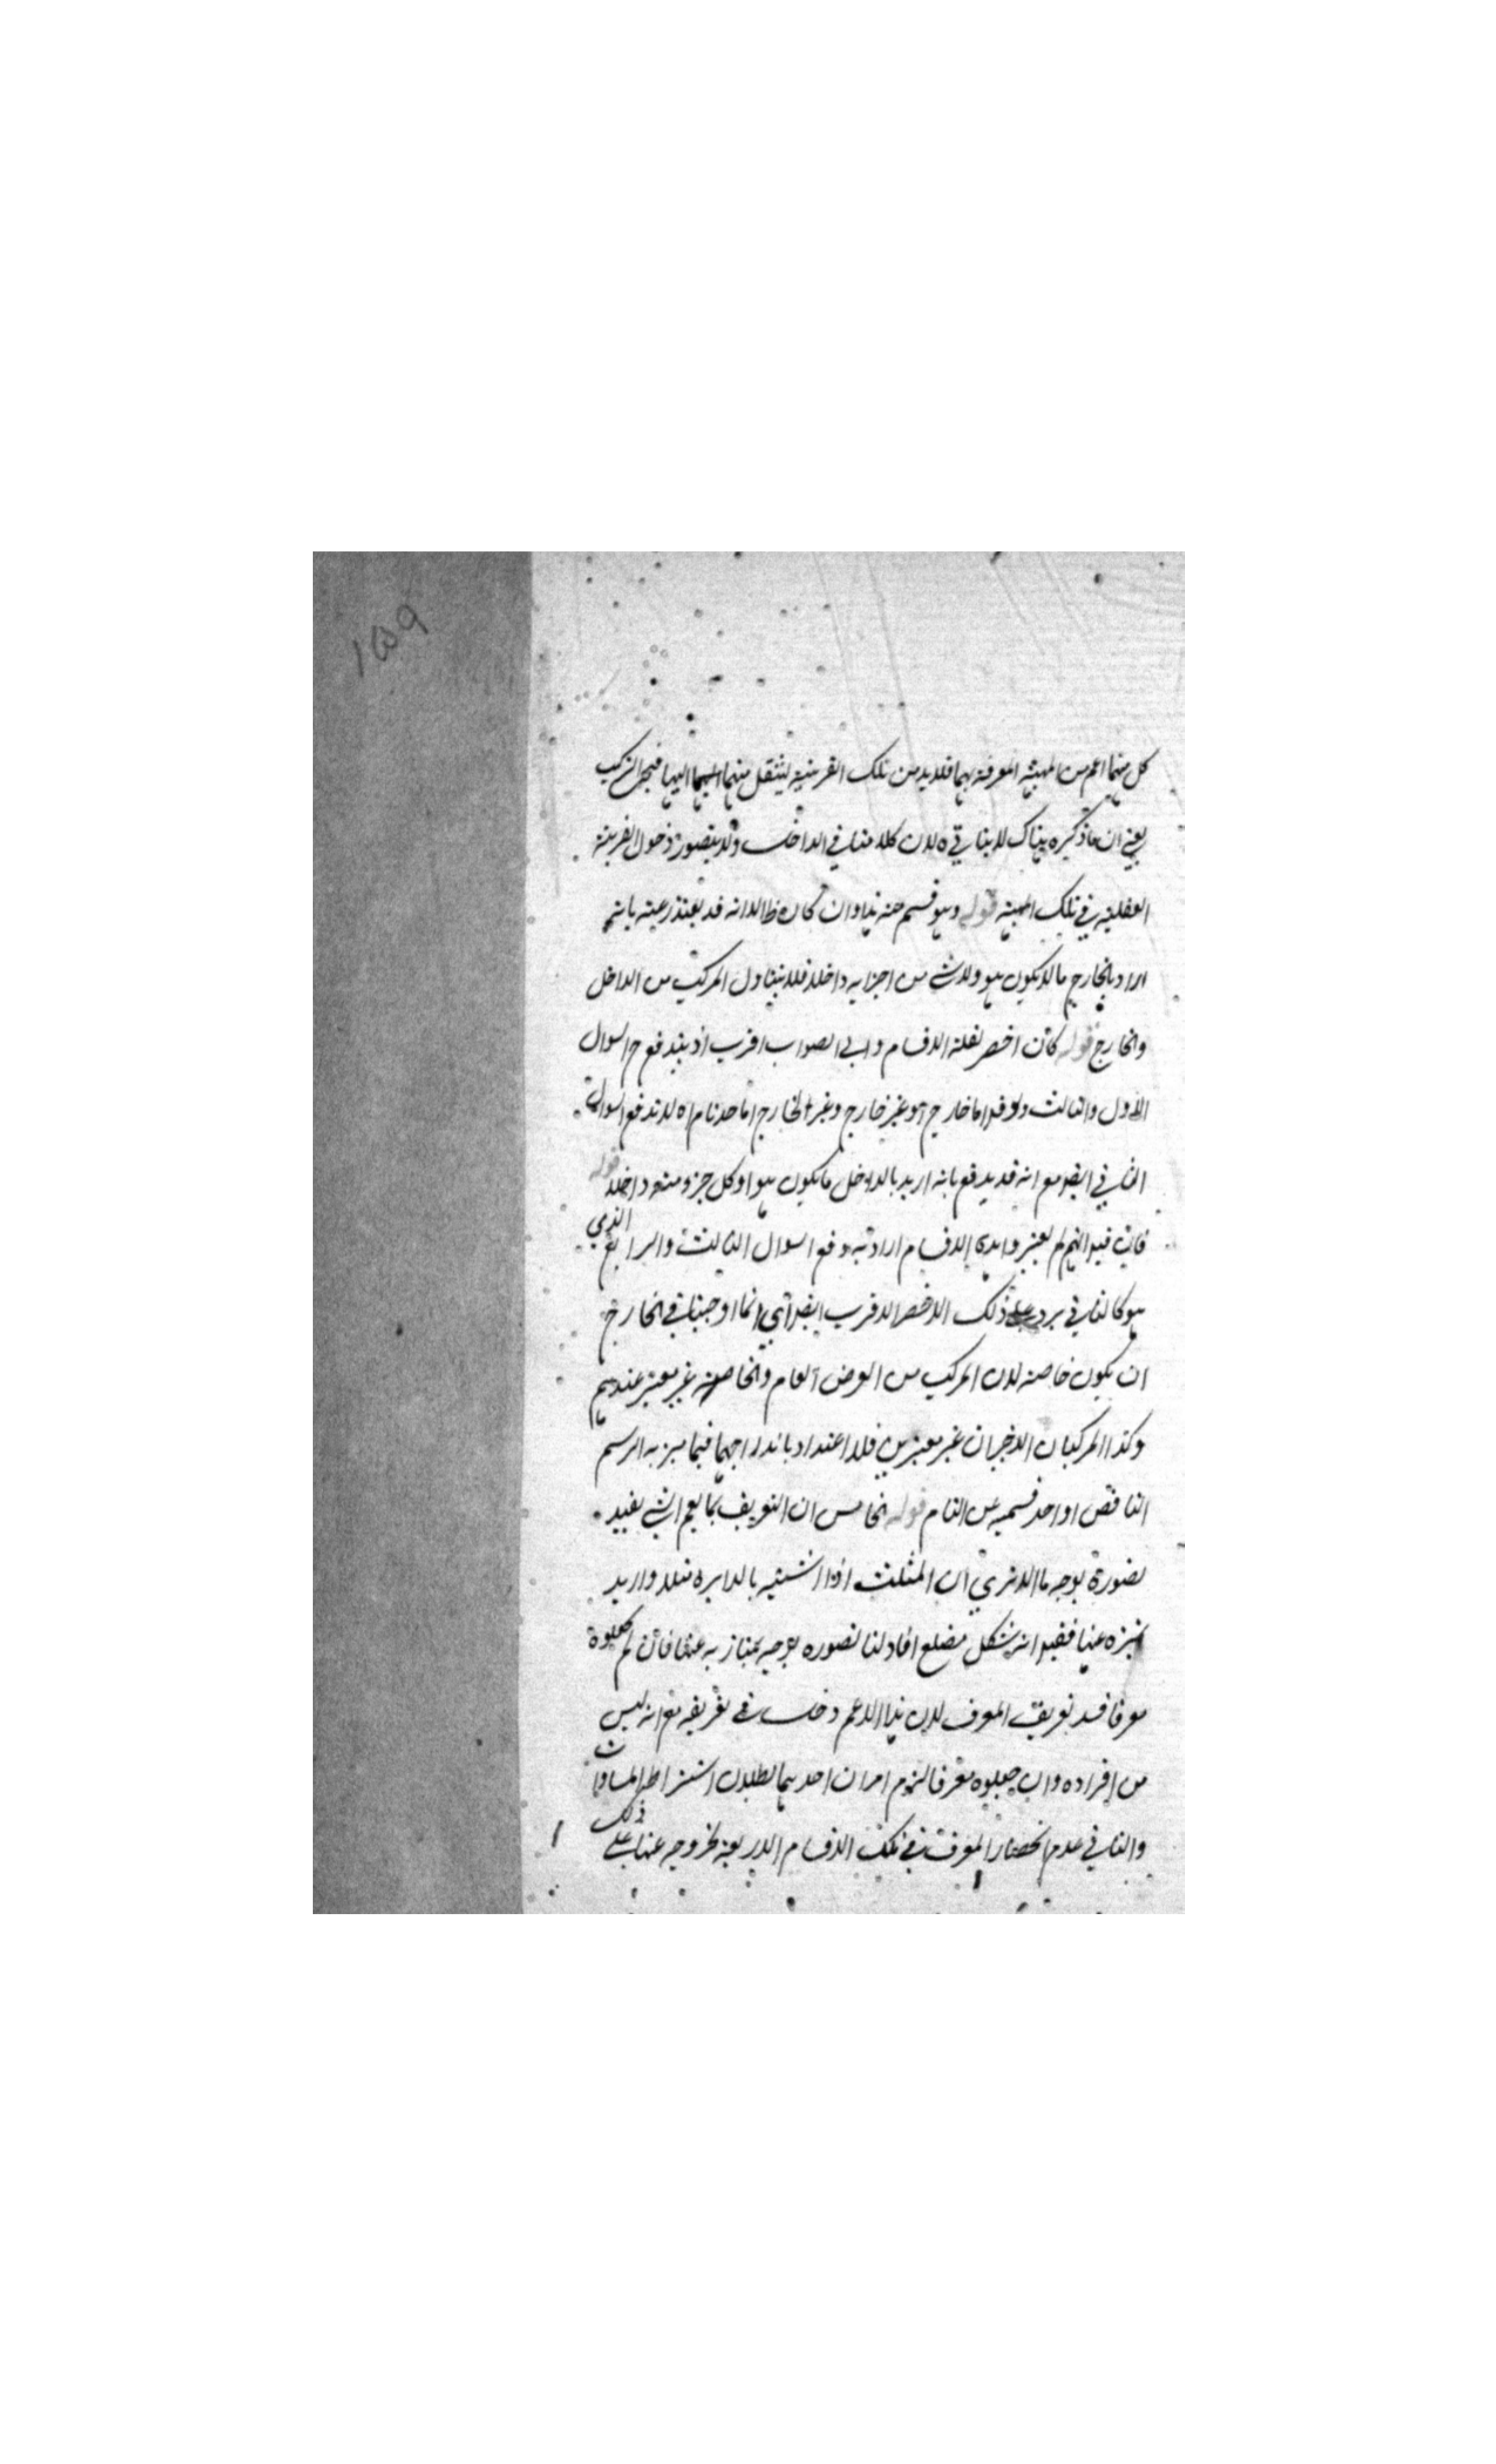 ١٥٩
كل منهما اعم من المهية المعرفة بهما فلا بد من تلك القرينة لينتقل منهما اليها فيجئ التركيب
يعني ان ما ذكره هناك لا ينافي ه لان كلامنا في الداخل ولا يتصور دخول القرينة
العقلية في تلك المهية قوله وهو قسم منه هذا وان كان ظ الا انه قد يعتذر عنه بانه
اراد بالخارج ما لا يكون هو ولا شئ من اجزايه داخلا فلا يتناول المركب من الداخل
والخارج قوله كان اخصر لقلة الاقسام والى الصواب اقرب اذ يندفع ح السوال
الاول والثالث ولو قيل اما خارج او غير خارج وغير الخارج اما حد تام اه لاندفع السوال
الثاني ايضا مع انه قد يدفع بانه اريد بالداخل ما يكون هو او كل جزء منه داخلا قوله
فان قيل انهم لم يعتبروا هذه الاقسام اراد به دفع السوال الثالث والرابع الذي
هو كالثاني يرد على ذلك الاخصر الاقرب ايضا اي انما اوجبنا في الخارج
ان يكون خاصة لان المركب من العرض العام والخاصة غير معتبر عندهم
وكذا المركبان الاخيران غير معتبرين فلا اعتداد باندراجهما فيما ميز به الرسم
الناقص او احد قسميه عن التام قوله الخامس ان التعريف بما يعم الشئ يفيد
تصوره بوجه ما الا ترى ان المثلث اذا اشتبه بالدايره مثلا واريد
تميزه عنها فقيل انه شكل مضلع افاد لنا تصوره بوجه يمتاز به عنها فان لم يجعلوه
معرفا فسد تعريف المعرف لان هذا الاعم دخل في تعريفه مع انه ليس
من افراده وان جعلوه معرفا لزم امران احدهما بطلان اشتراط المساواة
والثاني عدم انحصار المعرف في تلك الاقسام الاربعة لخروجه عنها على ذلك